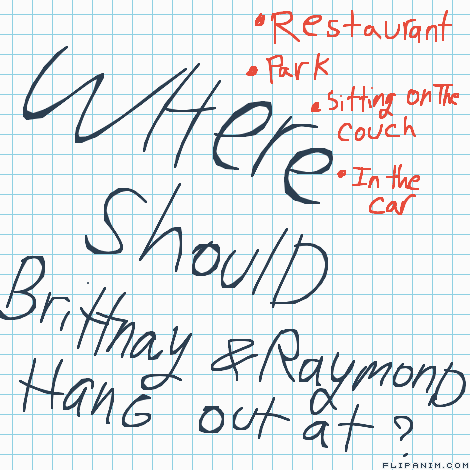 • Restaurant
• Park
• Sitting on The
couch
• In the
car
WHere
Should
Brittnay & Raymond
Hang out at?
FLIPANIM.COM